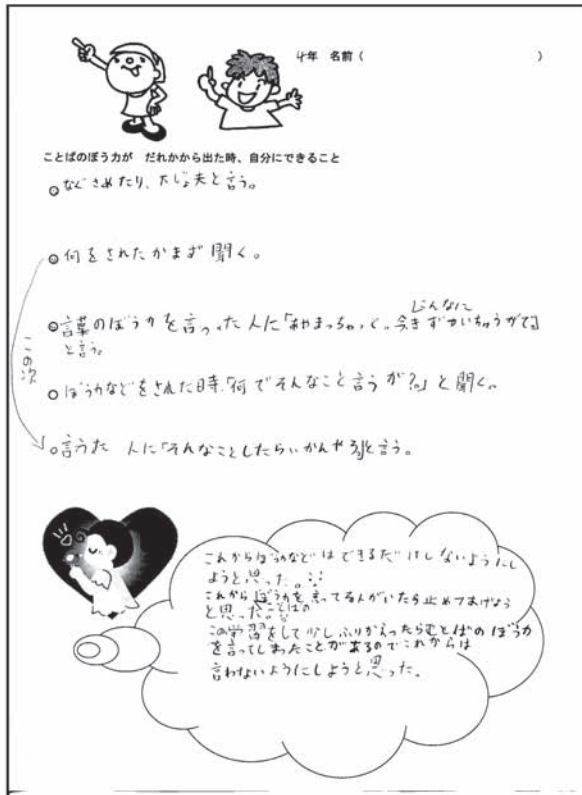 4年 名前( )
ことばのぼう力が だれかから出た時、自分にできること
なぐさめたり、大じょ夫と言う。
何をされたかまず聞く。
どんなに
言葉のぼう力を言った人に「あやまっちゃって。今きずついちゅうがで」
と言う。
この次
ぼう力などをされた時、「何でそんなこと言うが?。」と聞く。
言うた 人に「そんなことしたらいかんやろ」と言う。
これからぼう力などはできるだけしないようにし
ようと思った。
これからぼう力を言ってる人がいたら止めてあげよう
と思った。ことばの
この学習をして少しふりかえったらことばのぼう力
を言ってしまったことがあるのでこれからは
言わないようにしようと思った。